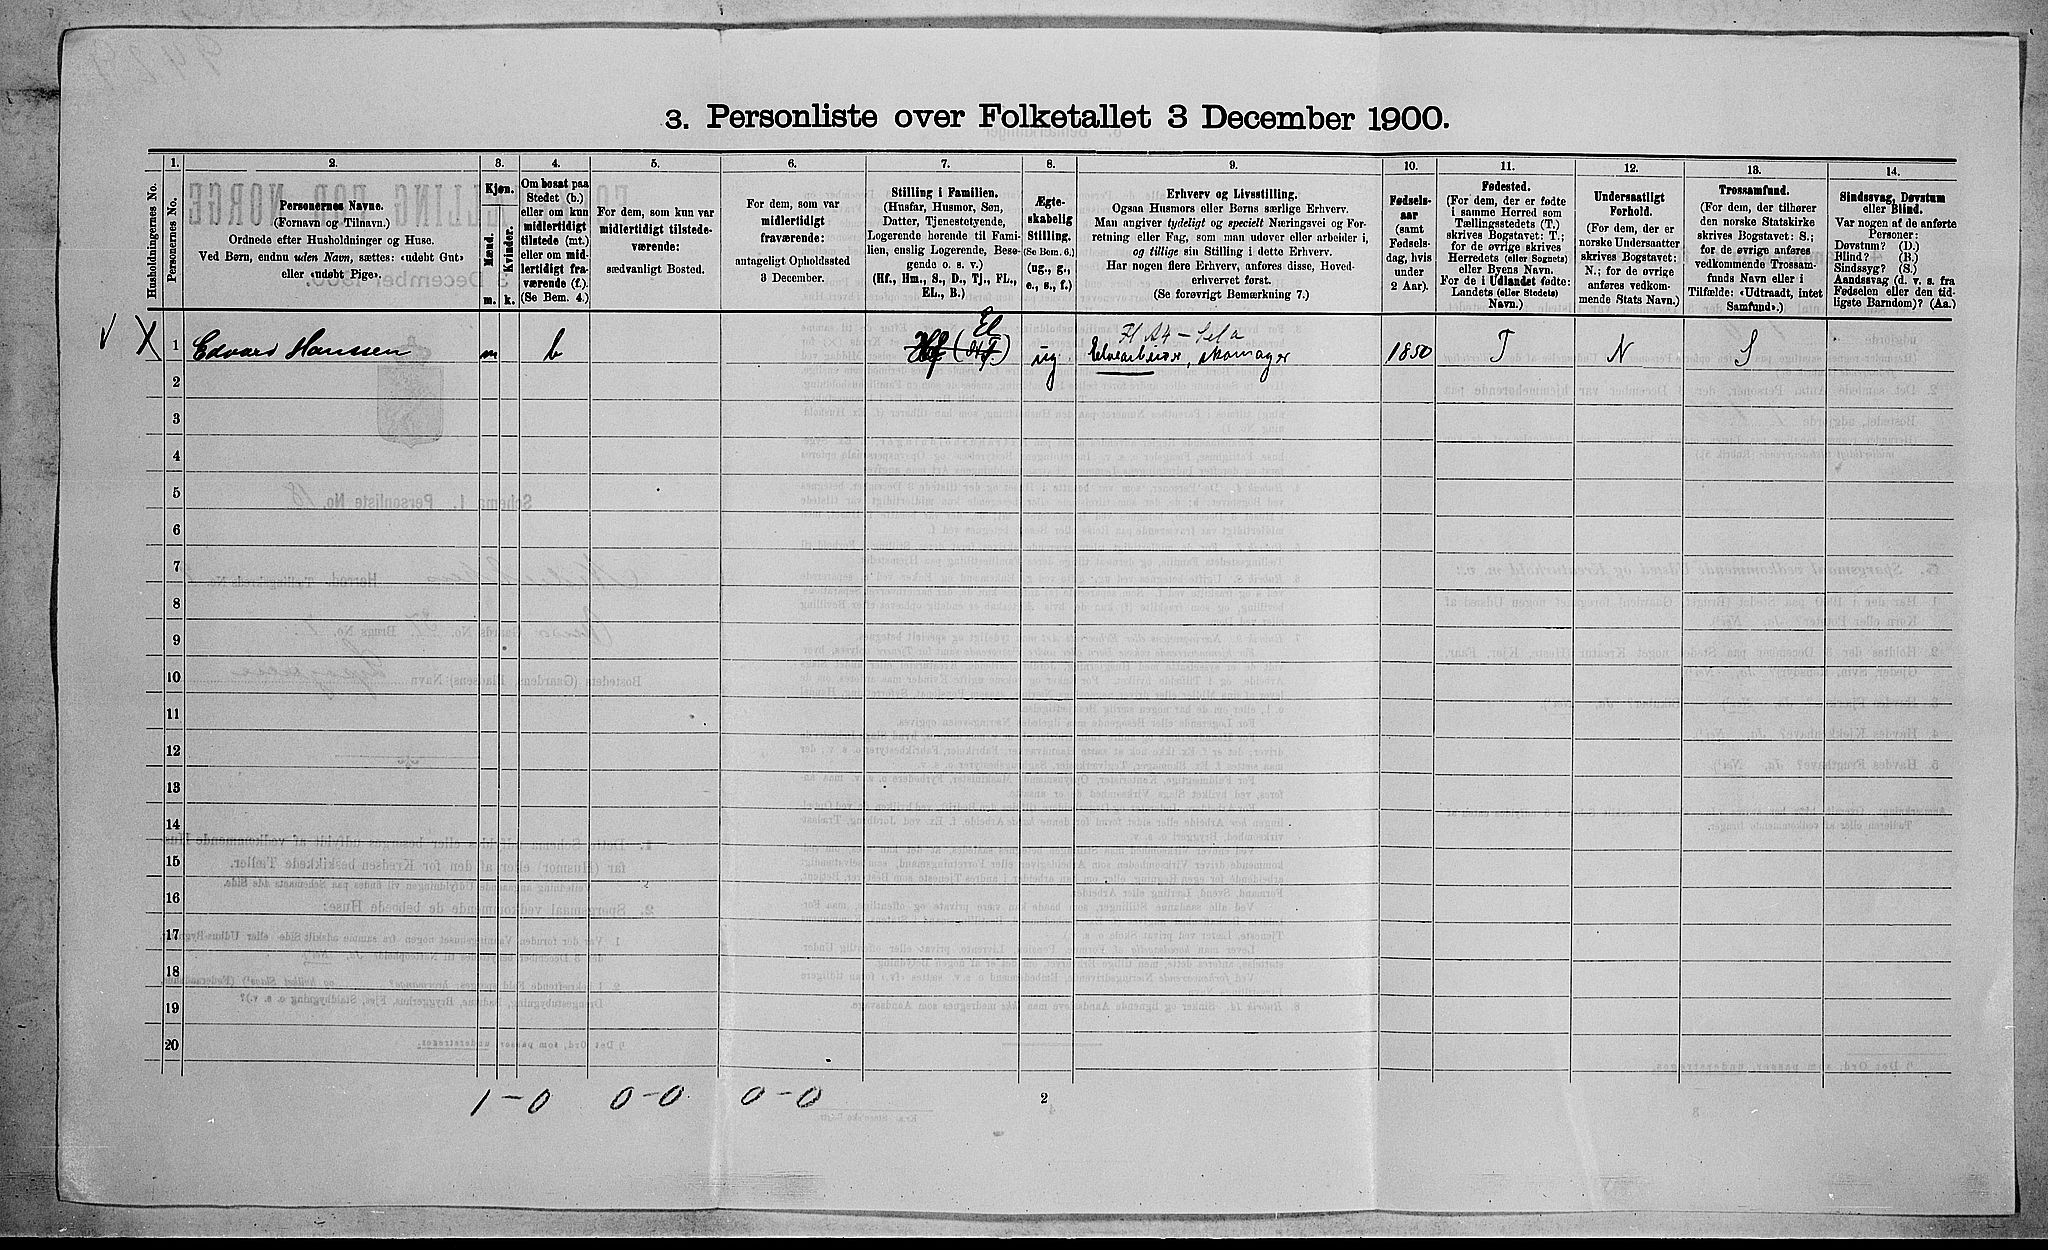 3. Personliste over Folketallet 3 December 1900.
Husholdningernes No.
1.
Personernes No.
2.
Personernes Navne.
(Fornavn og Tilnavn.)
Ordnede efter Husholdninger og Huse.
Ved Børn, endnu uden Navn, sættes: «udøbt Gut»
eller «udøbt Pige».
3.
Kjøn.
Mænd.
Kvinder.
m.
k.
4.
Om bosat paa
Stedet (b.)
eller om kun
midlertidigt
tilstede (mt.)
eller om mid-
lertidigt fra-
værende (f.)
(Se Bem. 4.)
5.
For dem, som kun var
midlertidigt tilstede-
værende:
sædvanligt Bosted.
6.
For dem, som var
midlertidigt
fraværende:
antageligt Opholdssted
3 December.
7.
Stilling i Familien.
(Husfar, Husmor, Søn,
Datter, Tjenestetyende,
Logerende hørende til Fami-
lien, enslig Logerende, Besø-
gende o. s. v.)
(Hf., Hm., S., D., Tj., FL.,
EL., B.)
8.
Ægte-
skabelig
Stilling.
(Se Bem. 6.)
(ug., g.,
e., s., f.)
9.
Erhverv og Livsstilling.
Ogsaa Husmors eller Børns særlige Erhverv.
Man angiver tydeligt og specielt Næringsvei og For-
retning eller Fag, som man udøver eller arbeider i,
og tillige sin Stilling i dette Erhverv.
Har nogen flere Erhverv, anføres disse, Hoved-
erhvervet først.
(Se forøvrigt Bemærkning 7.)
10.
Fødsels-
aar
(samt
Fødsels-
dag, hvis
under
2 Aar).
11.
Fødested.
(For dem, der er fødte
i samme Herred som
Tællingsstedets (T.)
skrives Bogstavet: T.;
for de øvrige skrives
Herredets (eller Sognets)
eller Byens Navn.
For de i Udlandet fødte:
Landets (eller Stedets)
Navn.)
12.
Undersaatligt
Forhold.
(For dem, der er
norske Undersaatter
skrives Bogstavet:
N.; for de øvrige
anføres vedkom-
mende Stats Navn.)
13.
Trossamfund.
(For dem, der tilhører
den norske Statskirke
skrives Bogstavet: S.;
for de øvrige anføres
vedkommende Trossam-
funds Navn eller i
Tilfælde: «Udtraadt, intet
Samfund».)
14.
Sindssvag, Døvstum
eller Blind.
Var nogen af de anførte
Personer:
Døvstum? (D.)
Blind? (B.)
Sindssyg? (S.)
Aandssvag (d. v. s. fra
Fødselen eller den tid-
ligste Barndom)? (Aa.)
El
1 Edvard Hanssen m b Hf ug. skomager 1850 T N S
2
3
4
5
6
7
8
9
10
11
12
13
14
15
16
17
18
19
20
1 – 0 0 – 0 0 – 0
2